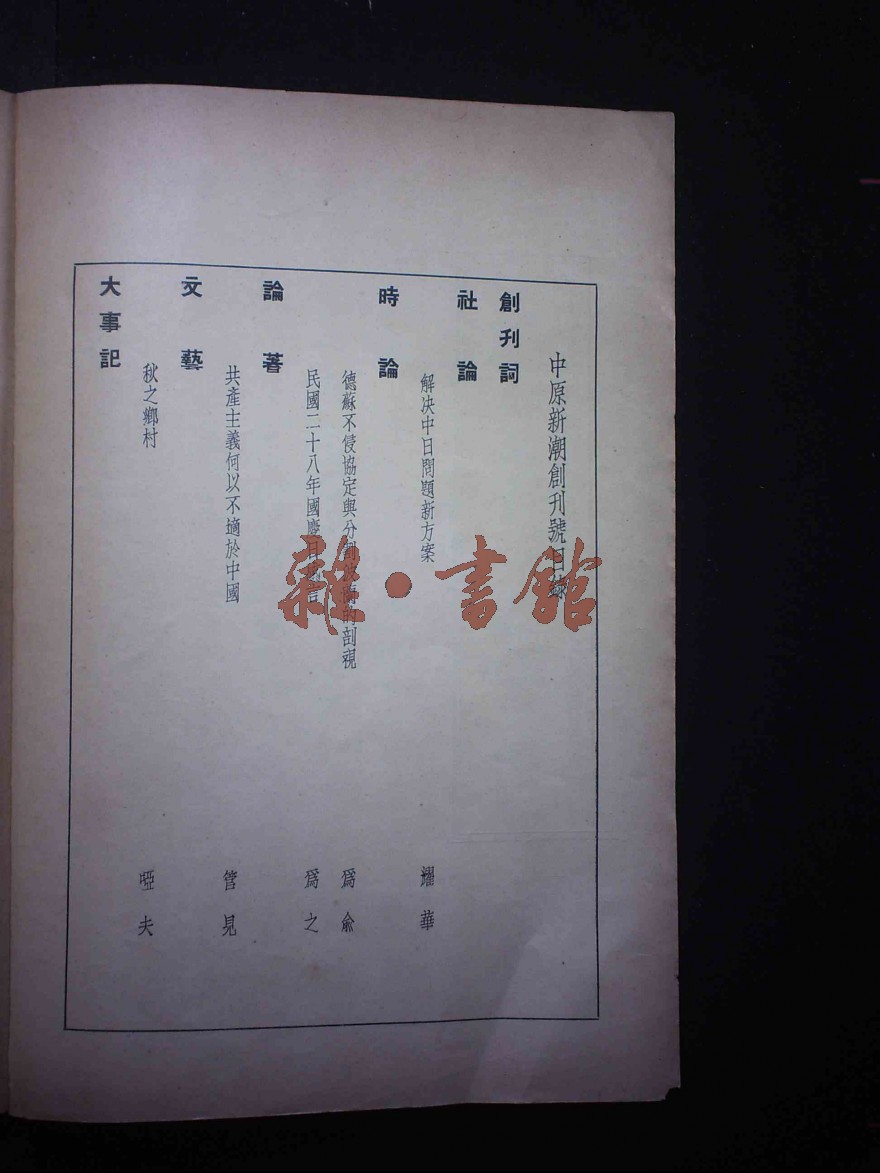 中原新潮創刊號目錄
創刊詞
社論
解决中日問題新方案 耀華
時論
德蘇不侵協定與分割波蘭的剖視 爲俞
民國二十八年國慶日感言 爲之
論著
共產主義何以不適於中國 管見
文藝
秋之鄉村 啞夫
大事記
雜·書館